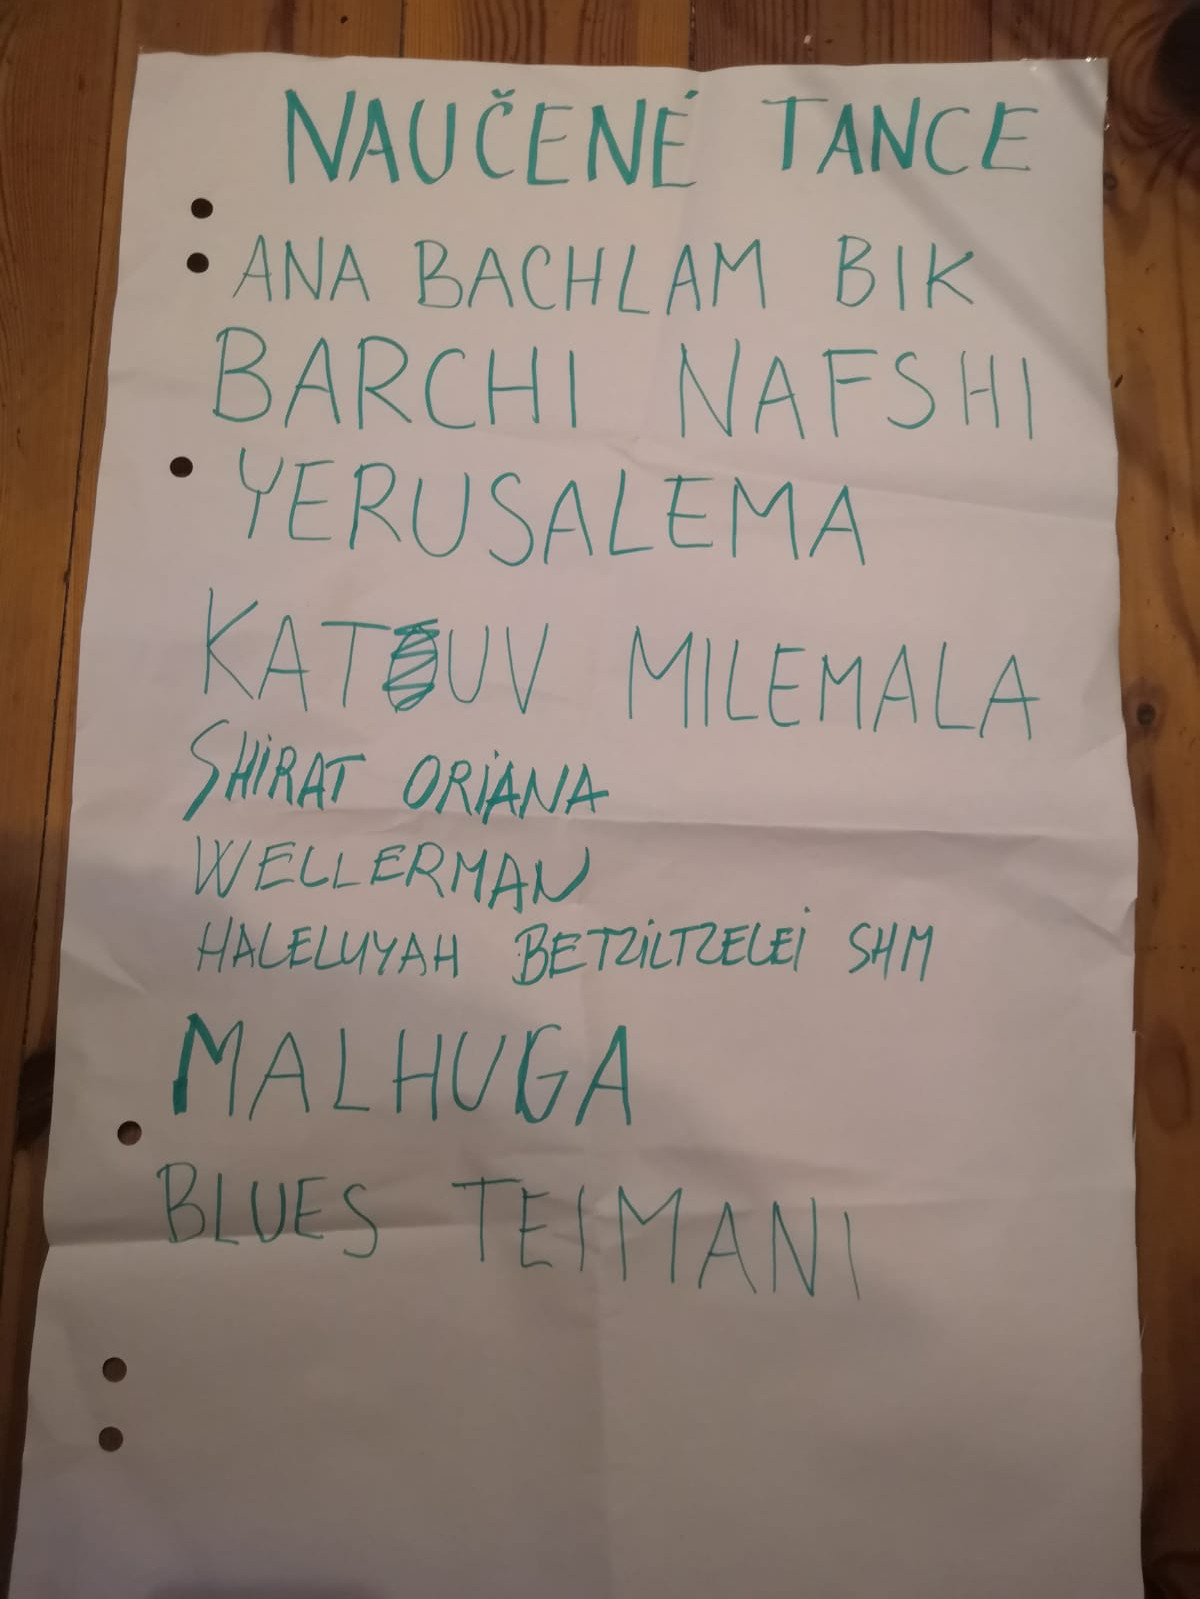 NAUČENÉ TANCE
ANA BACHLAM BIK
BARCHI NAFSHI
YERUSALEMA
KATUV MILEMALA
SHIRAT ORIANA
WELLERMAN
HALELUYAH BETZILTZELEI SHM
MALHUGA
BLUES TEIMANI